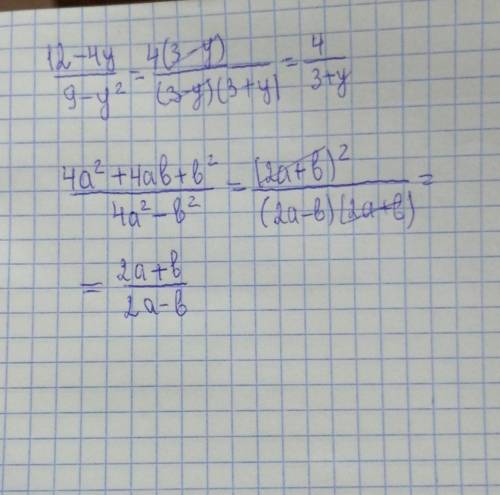 (12-4y)/(9-y²) = 4(3-y)/((3-y)(3+y)) = 4/(3+y)
(4a²+4ab+b²)/(4a²-b²) = (2a+b)²/((2a-b)(2a+b)) =
= (2a+b)/(2a-b)